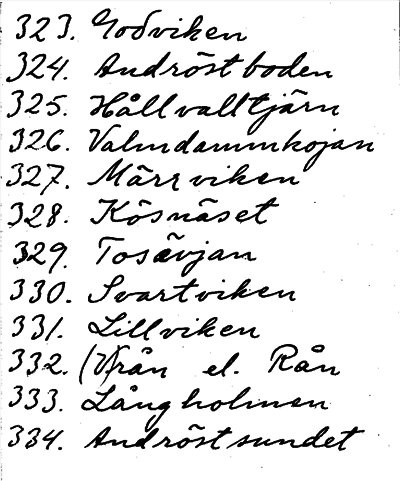 323. Godviken
324. Andröstboden
325. Hållvalltjärn
326. Valmdammkojan
327. Märrviken
328. Kösnäset
329. Tosävjan
330. Svartviken
331. Lillviken
332. (V)rån el. Rån
333. Långholmen
334. Andröstsundet